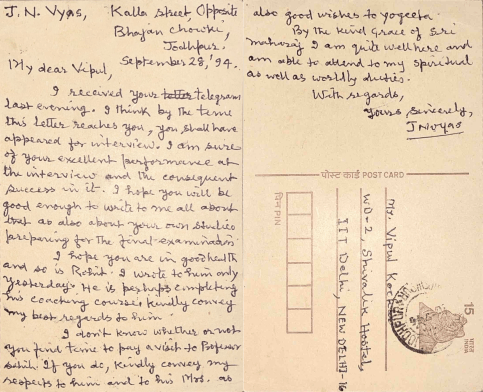 J. N. Vyas, Kalla Street, Opposite
Bhajan Chowki,
Jodhpur.
September 28, '94.
My dear Vipul,
I received your letter telegram
last evening. I think by the time
this letter reaches you, you shall have
appeared for interview. I am sure
of your excellent performance at
the interview and the consequent
success in it. I hope you will be
good enough to write to me all about
that as also about your own studies
preparing for the final-examination.
I hope you are in good health
and so is Rohit. I wrote to him only
yesterday. He is perhaps completing
his coaching course; kindly convey
my best regards to him.
I don't know whether or not
you find time to pay a visit to Professor
If you do, kindly convey my
respects to him and to his Mrs. as
also good wishes to Yogeeta.
By the kind Grace of Sri
Maharaj I am quite well here and
am able to attend to my spiritual
as well as worldly duties.
With regards,
Yours sincerely,
JNVyas
पोस्ट कार्ड POST CARD
पिन PIN
Mr. Vipul
WD-2, Shivalik Hostel,
IIT Delhi, NEW DELHI-16
15
भारत
INDIA